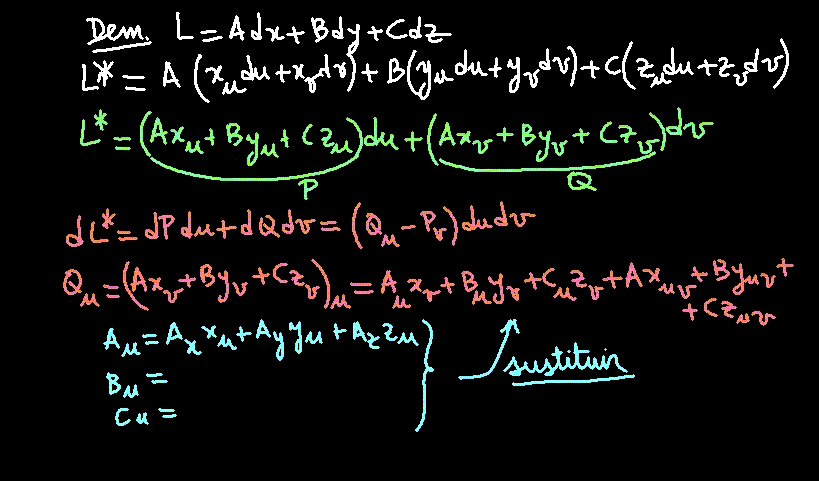 Dem. L = A dx + B dy + C dz
L* = A (x_u du + x_v dv) + B(y_u du + y_v dv) + C(z_u du + z_v dv)
L* = (Ax_u + By_u + Cz_u)du + (Ax_v + By_v + Cz_v)dv
P Q
dL* = dP du + dQ dv = (Q_u - P_v) du dv
Q_u = (Ax_v + By_v + Cz_v)_u = A_u x_v + B_u y_v + C_u z_v + Ax_uv + By_uv +
+ Cz_uv
A_u = A_x x_u + A_y y_u + A_z z_u
sustituir
B_u =
C_u =